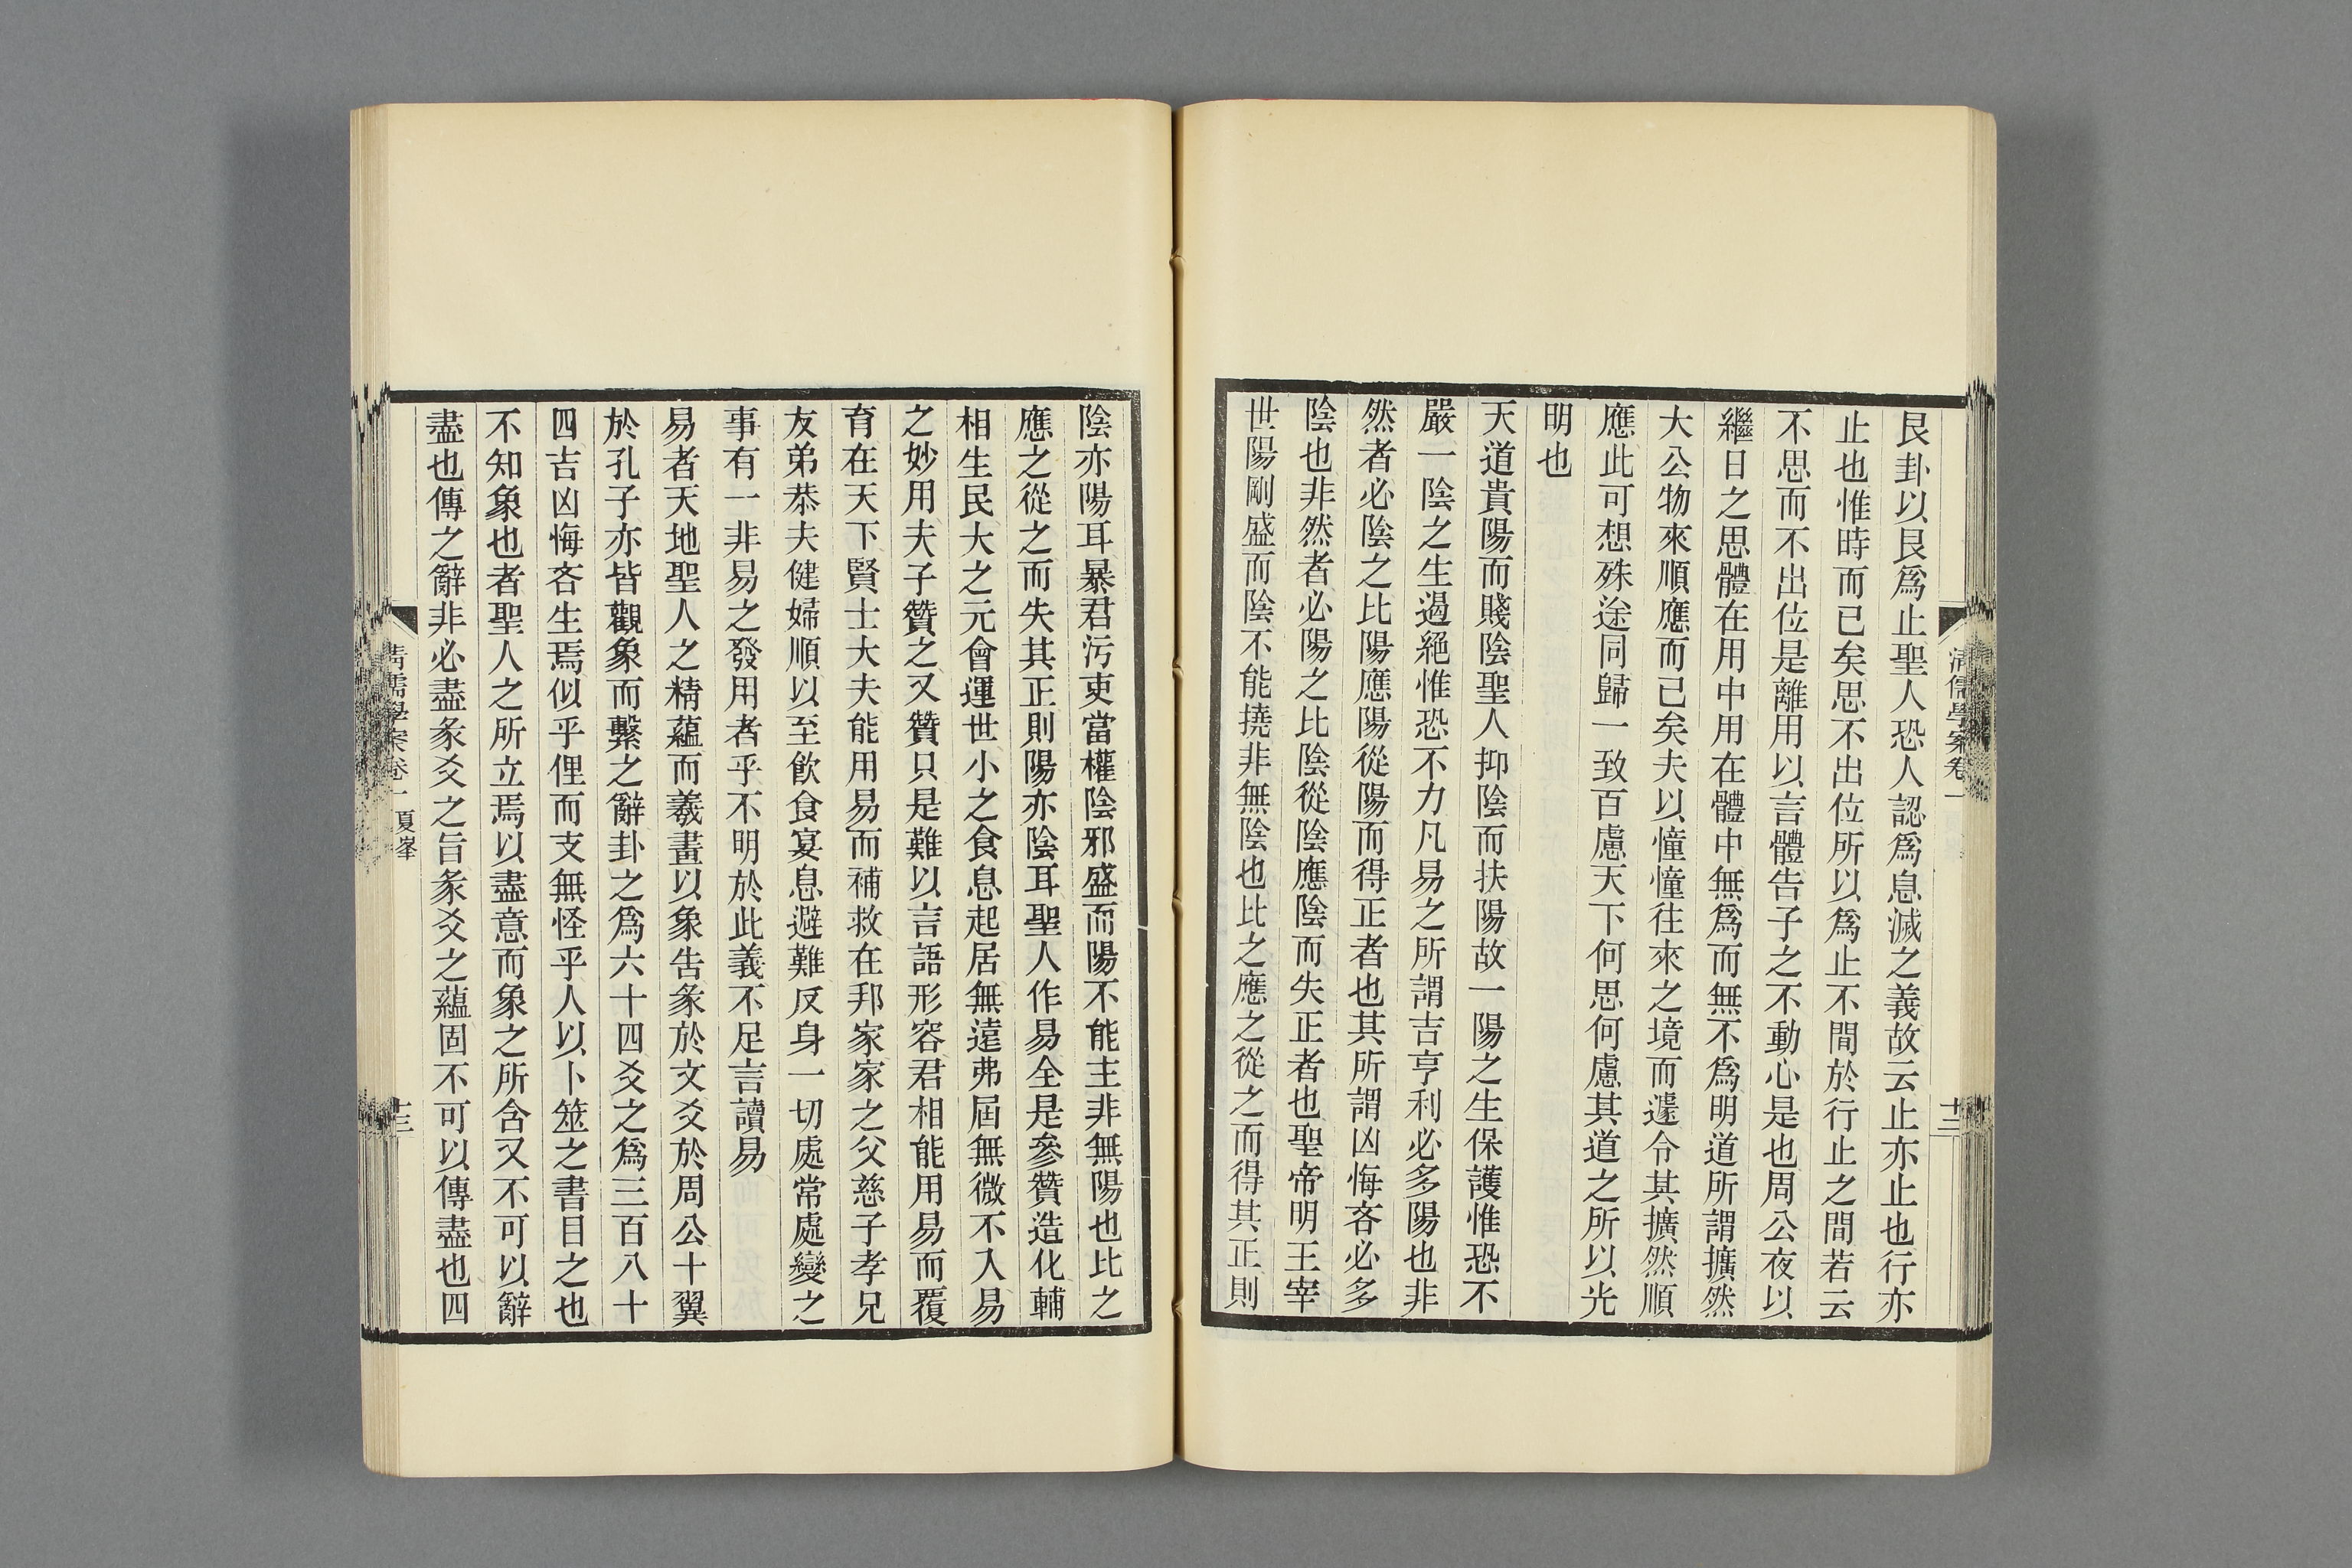 清儒學案卷一
十二
艮卦以艮爲止聖人恐人認爲息滅之義故云止亦止也行亦
止也惟時而已矣思不出位所以爲止不間於行止之間若云
不思而不出位是離用以言體告子之不動心是也周公夜以
繼日之思體在用中用在體中無爲而無不爲明道所謂擴然
大公物來順應而已矣夫以憧憧往來之境而遽令其擴然順
應此可想殊途同歸一致百慮天下何思何慮其道之所以光
明也
天道貴陽而賤陰聖人抑陰而扶陽故一陽之生保護惟恐不
嚴一陰之生過絕惟恐不力凡易之所謂吉亨利必多陽也非
然者必陰之比陽應陽從陽而得正者也其所謂凶悔吝必多
陰也非然者必陽之比陰從陰應陰而失正者也聖帝明王宰
世陽剛盛而陰不能撓非無陰也比之應之從之而得其正則
陰亦陽耳暴君污吏當權陰邪盛而陽不能主非無陽也比之
應之從之而失其正則陽亦陰耳聖人作易全是參贊造化輔
相生民大之元會運世小之食息起居無遠弗屆無微不入易
之妙用夫子贊之又贊只是難以言語形容君相能用易而覆
育在天下賢士大夫能用易而補救在邦家家之父慈子孝兄
友弟恭夫健婦順以至飮食宴息避難反身一切處常處變之
事有一非易之發用者乎不明於此義不足言讀易
易者天地聖人之精蘊而羲畫以象告彖於文爻於周公十翼
於孔子亦皆觀象而繫之辭卦之爲六十四爻之爲三百八十
四吉凶悔吝生焉似乎俚而支無怪乎人以卜筮之書目之也
不知象也者聖人之所立焉以盡意而象之所含又不可以辭
盡也傳之辭非必盡彖爻之旨彖爻之蘊固不可以傳盡也四
清儒學案卷一 夏峯
十三